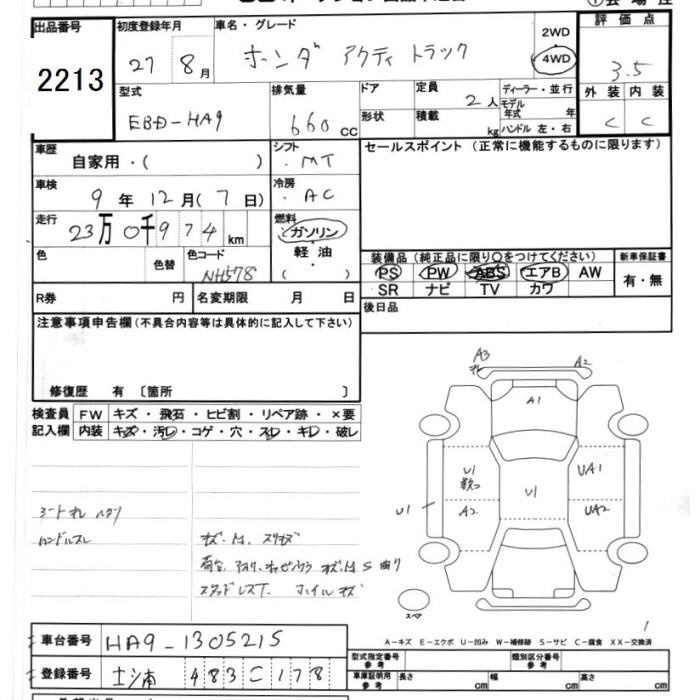 出品番号
2213
初度登録年月
27 8月
車名・グレード
ホンダ アクティ トラック
2WD
4WD
評価点
3.5
外装 内装
C C
型式
EBD-HA9
排気量
660cc
ドア
形状
定員
2人
積載
kg
ディーラー・並行
モデル年式 年
ハンドル 左・右
車歴
自家用・( )
シフト
MT
セールスポイント (正常に機能するものに限ります)
車検
9年12月(7日)
冷房
AC
走行
23万0千974km
燃料
ガソリン
軽油
( )
色
色替
色コード
NH578
装備品 (純正品に限り○をつけてください)
PS PW ABS エアB AW
SR ナビ TV カワ
新車保証書
有・無
R券 円
名変期限 月 日
後日品
注意事項申告欄 (不具合内容等は具体的に記入して下さい)
修復歴 有 〔箇所 〕
検査員記入欄
FW キズ・飛石・ヒビ割・リペア跡・×要
内装 キズ・汚レ・コゲ・穴・スレ・キレ・破レ
ハンドルスレ
A3
A2
A1
U1
A2
U1
U1
UA1
UA2
スペア
A-キズ E-エクボ U-凹み W-補修跡 S-サビ C-腐食 XX-交換済
車台番号
HA9-1305215
登録番号
483 C 178
型式指定番号
参考
類別区分番号
参考
車庫証明用
参考
長さ cm
幅 cm
高さ cm